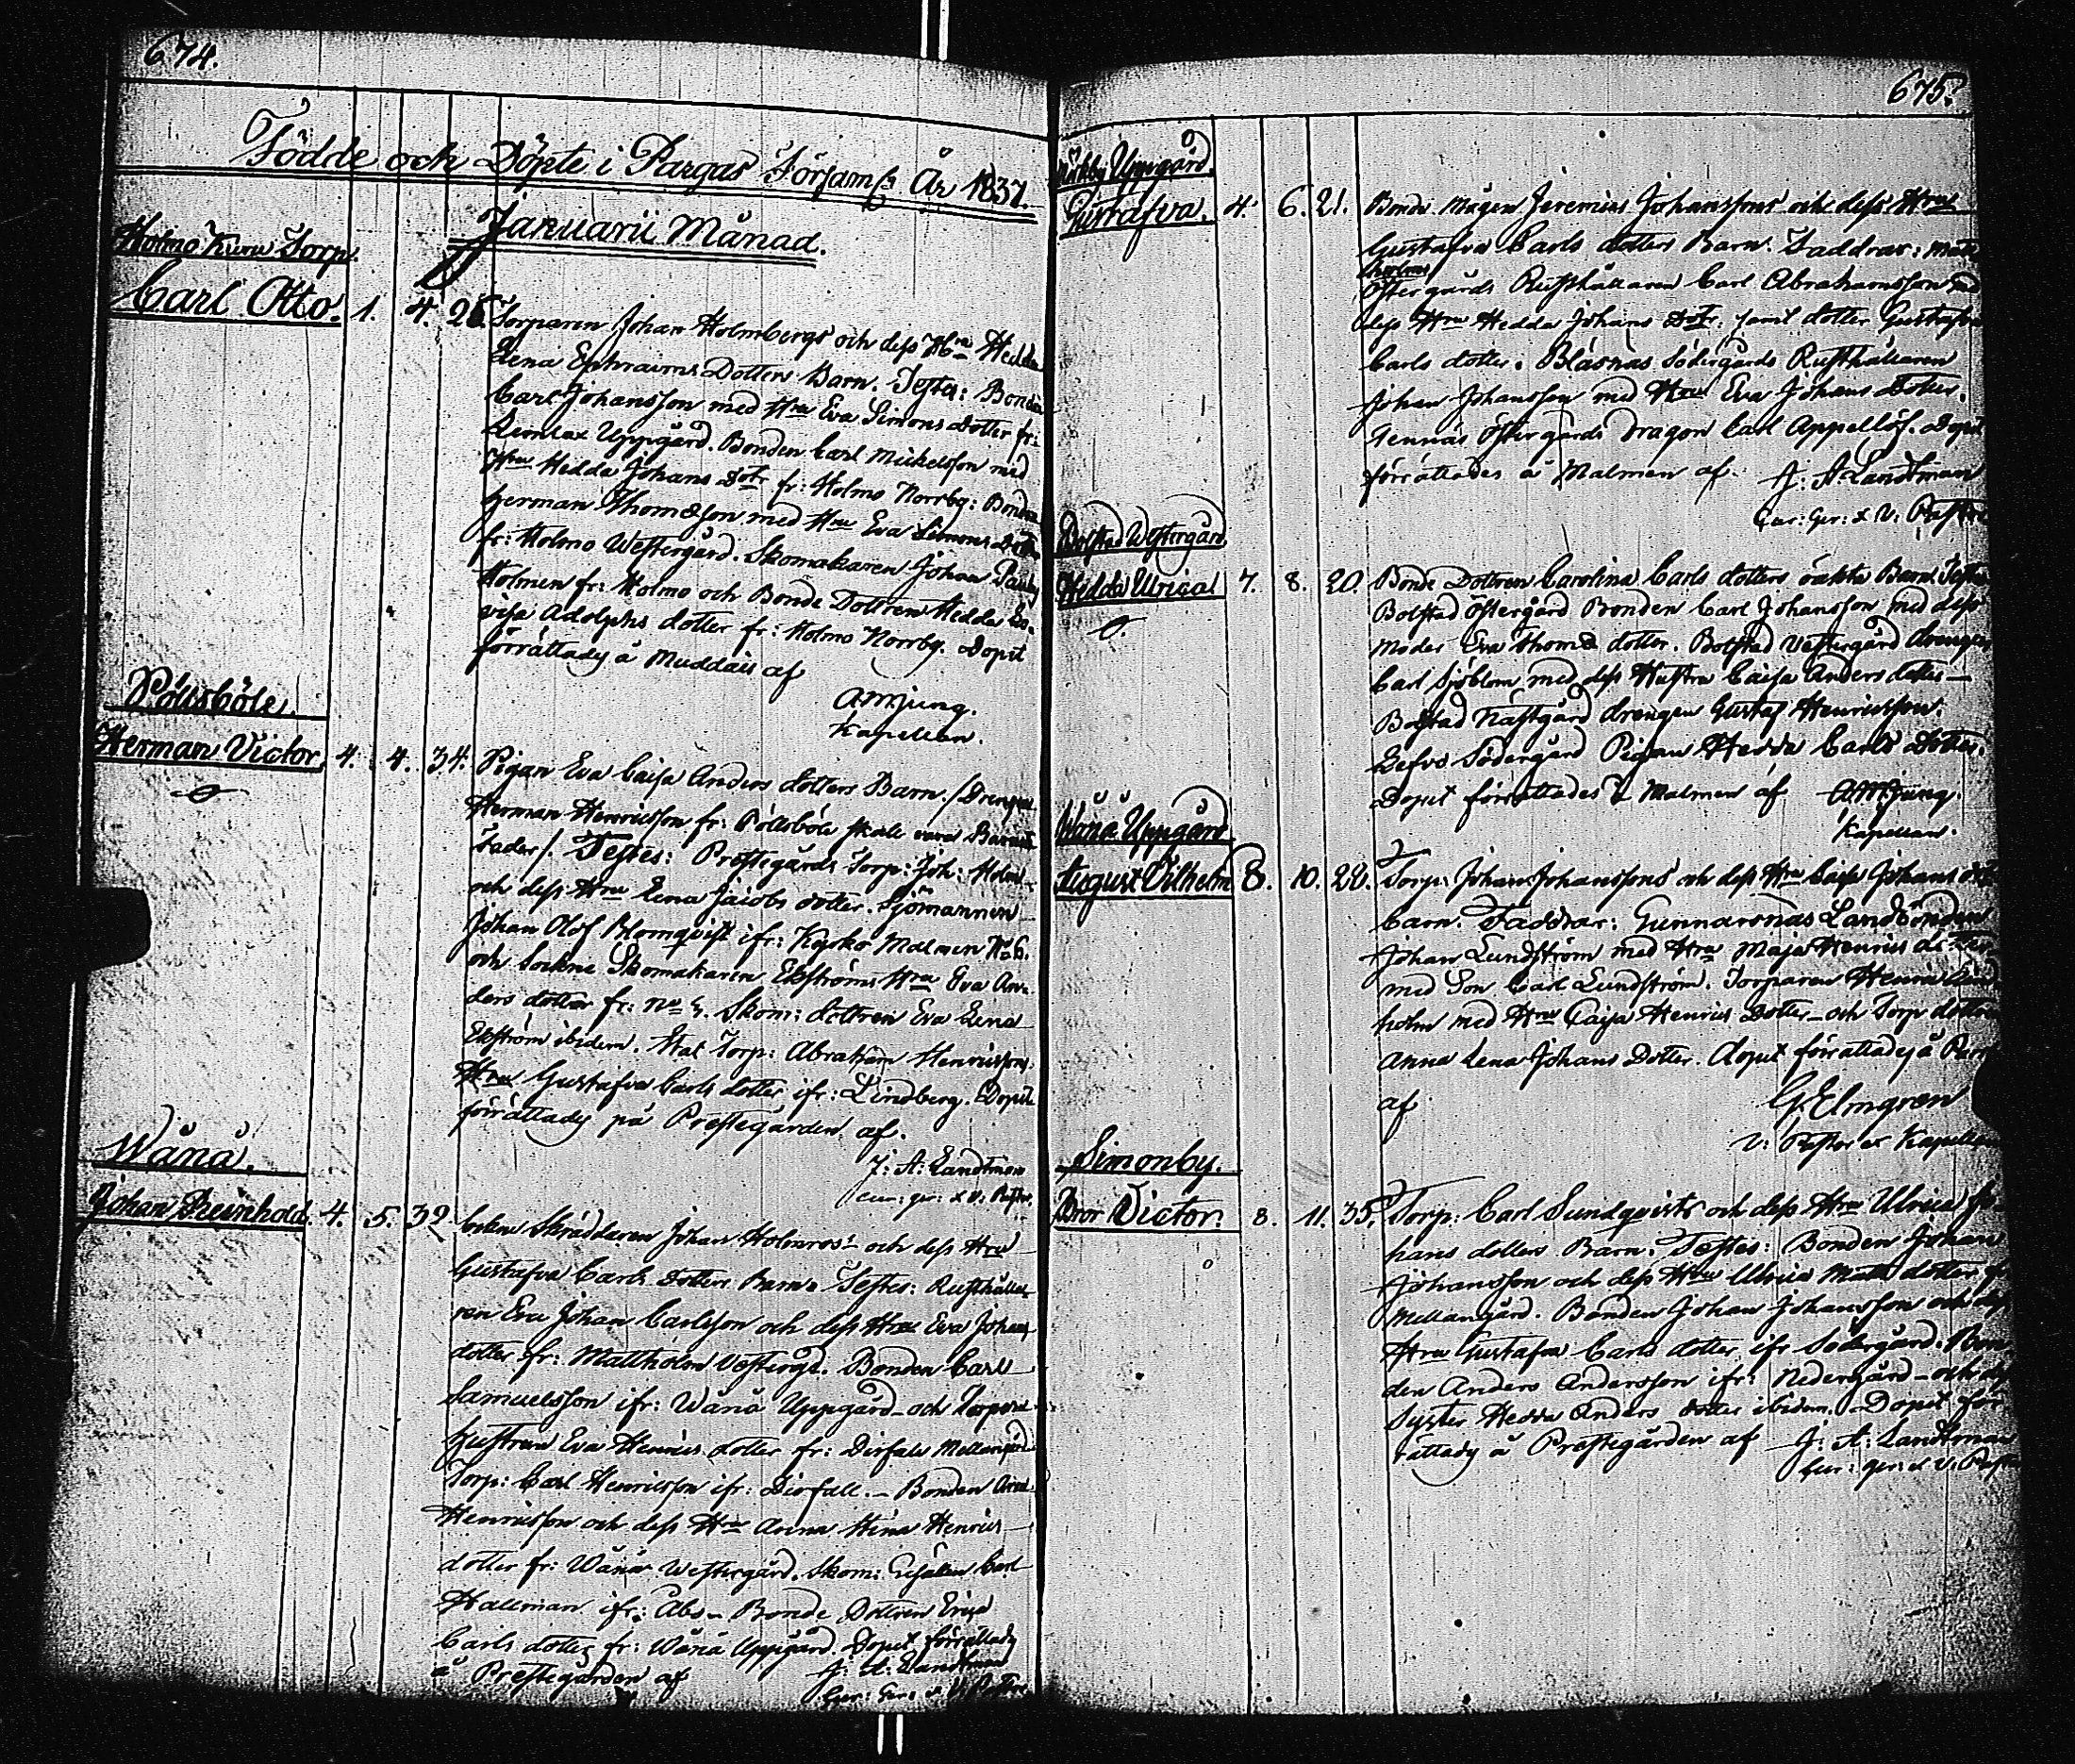 674.
Födde och Döpte i Pargas Församl: År 1837.
Januarii Månad.
Holmo Torp
Carl Otto. 1. 4. Torparen Johan Holmbergs och dess Hedda
Lena Ephraims Dotters Barn. Testes: Bonden
Carl Johansson med Hru Eva Simons Dotter fr:
Uppgård. Bonden Carl Mickelsson med
Hru Hedda Johans Dotr fr: Holmo Norrby: Bonden
Herman Thomæson med Hru Eva Simons
fr: Holmo Westergård. Skomakaren Johan
Holmen fr: Holmo och Bonde Dottren Hedda Lo-
visa Adolphs dotter fr: Holmo Norrby. Döpit
förrättades å Muddais af
A. W. Ljung.
Kapellan.
Pölisböle.
Herman Victor. 4. 4. 34. Pigan Eva Caisa Anders dotters Barn. /: Drengen
Herman Henricsson fr: Pölisböle skall vara Barnets
Fader /. Testes: Prestegårds Torp: Joh: Holm
och dess Hru Lena Jacobs dotter. Sjömannen
Johan Olof Blomqvist ifr: Kyrko Malmen No 6.
och Sockne Skomakaren Ekströms Hru Eva An-
ders dotter fr: No Skom: dottren Eva Lena
Ekström ibidem. Torp: Abraham Henricssons
Hru Gustafva Carls dotter ifr: Lindberg. Döpit
förrättades på Prestegården af.
J: A: Landtman
cur: ger: & v: Pastor.
Wånå.
Johan Reinhold. 4. 5. 32. Sockne Skräddaren Johan Holmros och dess Hru
Gustafva Carls Dotters Barn. Testes: Rusthålla-
ren Johan Carlsson och dess Hru Eva Johans
dotter fr: Mattholm Vestergd. Bonden Carl
Samuelsson ifr: Wånå Uppgård och Torpare
Hustrun Eva Henrics dotter fr: Mellangård
Torp: Carl Henricsson ifr: Bonden
Henricsson och dess Hru Anna Stina Henrics
dotter fr: Wånå Westergård. Skom: Gesällen Carl
Hallman ifr: Åbo. Bonde Dottren
Carls dotter fr: Wånå Uppgård. Döpit förrättades
å Prestegården af J: A: Landtman
Cur: Ger: & V: Pastor
675.
Uppgård.
Gustafva. 4. 6. 21. Bonde Mågen Jeremias Johanssons och dess Hru
Gustafva Carls dotters Barn. Faddrar:
holms
Östergårds Rusthållaren Carl Abrahamsson med
dess Hru Hedda Johans Dotr: samt dotter Gustafva
Carls dotter. Bläsnäs Södergårds Rusthållaren
Johan Johansson med Hru Eva Johans Dotter.
Tennäs Östergårds Dragon Carl Appellöf. Döpit
förrättades å Malmen af. J: A: Landtman
Cur: Ger: & V: Pastor
Bolstad Westergård
Hedda Ulrica 7. 8. 20. Bonde Dottren Carolina Carls dotters oäkta Barn. Testes
Bolstad Östergård Bonden Carl Johansson med dess
Moder Eva Thomæ dotter. Bolstad Vestergård drengen
Carl Sjöblom med dess Hustru Caisa Anders dotter
Bolstad drengen Gustaf Henricsson.
Lofvo Södergård Pigan Hedda Carls Dotter.
Döpit förrättades å Malmen af A. W. Ljung.
Kapellan.
Wånå Uppgård.
August Wilhelm 8. 10. 28. Torp: Johan Johanssons och dess Hru Caisa Johans
barn. Faddrar: Gunnarsnäs Landbonden
Johan Lundström med Hru Maja Henrics
med Son Carl Lundström. Torparen
holm med Hru Caisa Henrics Dotter och Torp dottren
Anna Lena Johans Dotter. Döpit förrättades å
af G. Elmgren
v: Pastor et Kapellan
Simonby.
Bror Victor. 8. 11. 35. Torp: Carl Sundqvists och dess Hru Ulrica Jo-
hans dotters Barn. Testes: Bonden Johan
Johansson och dess Hru Ulrica Matts dotter
Mellangård. Bonden Johan Johansson och dess
Hru Gustafva Carls dotter ifr Södergård. Bon-
den Anders Andersson ifr: Nedergård och
Syster Hedda Anders dotter ibidem. Döpit för-
rättades å Prestegården af J: A: Landtman
Cur: ger: & V: Pastor